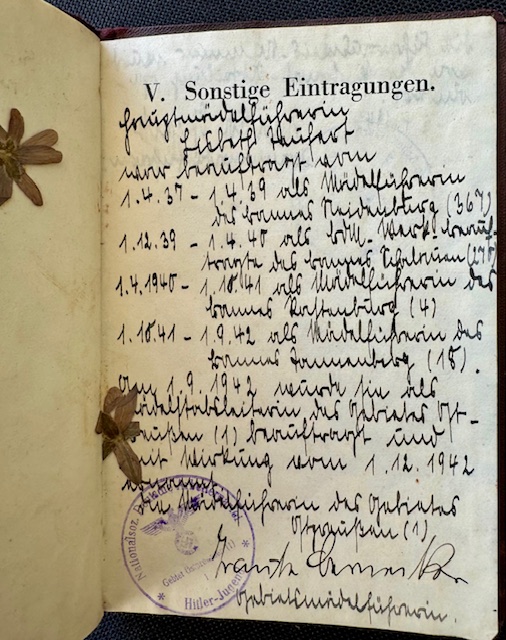 V. Sonstige Eintragungen.
Hauptmädelführerin
Lisbeth
war beauftragt vom
1.4.37 - 1.4.39 als Mädelführerin
des Bannes Neidenburg (367)
1.12.39 - 1.4.40 als BDM-Werk-Beauf-
tragte des Bannes
1.4.1940 - 1.10.41 als Mädelführerin des
Bannes Rastenburg (4)
1.10.41 - 1.9.42 als Mädelführerin des
Bannes Tannenberg (18).
Am 1.9.1942 wurde sie als
Mädelstabsleiterin des Gebietes Ost-
preußen (1) beauftragt und
mit Wirkung vom 1.12.1942
ernannt.
Die Mädelführerin des Gebietes
Ostpreußen (1)
Gebietsmädelführerin.
Nationalsoz. Deutsche
Gebiet
Hitler-Jugend